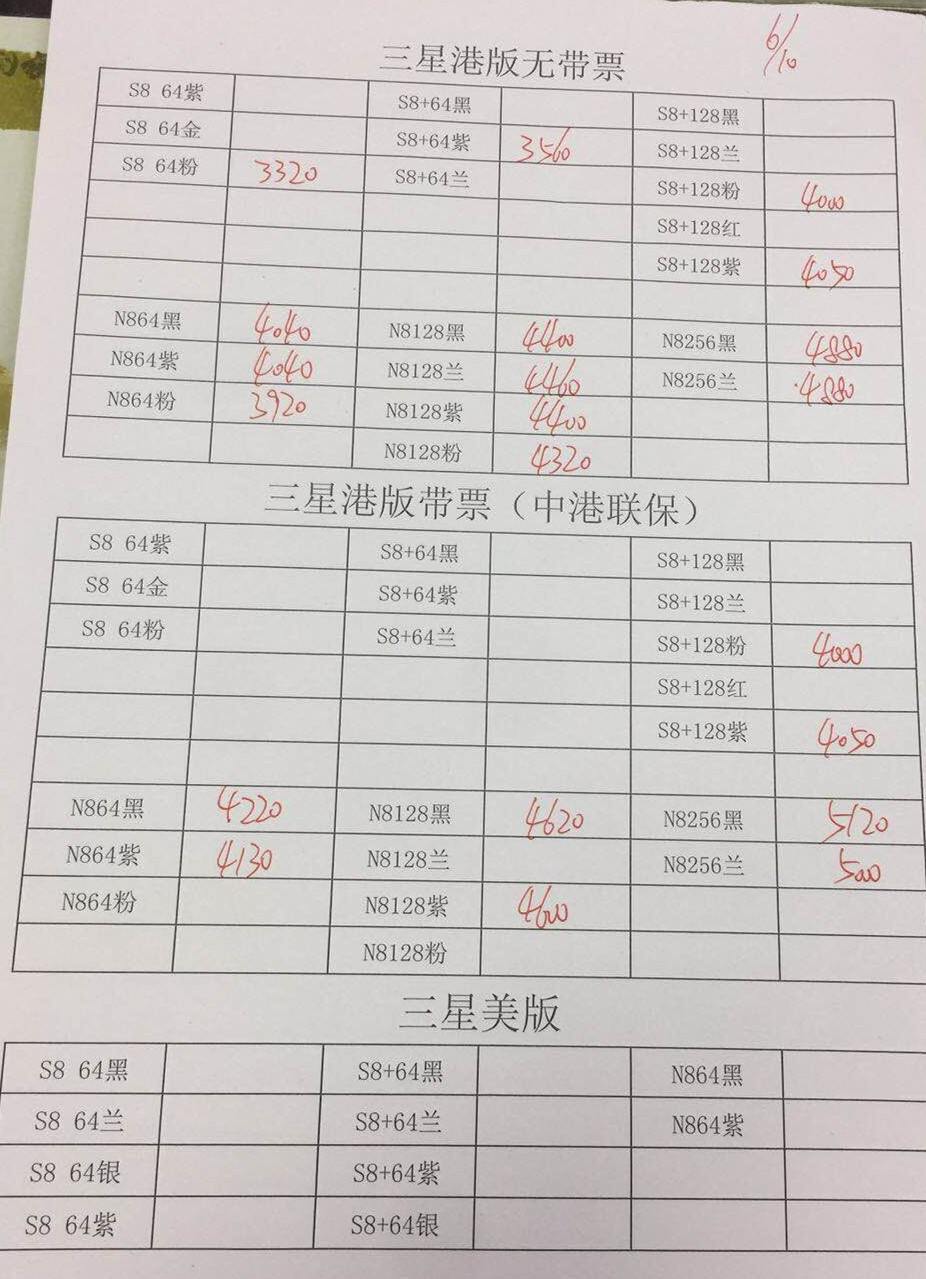 6/10
三星港版无带票
S8 64紫 S8+64黑 S8+128黑
S8 64金 S8+64紫 3560 S8+128兰
S8 64粉 3320 S8+64兰 S8+128粉 4000
S8+128红
S8+128紫 4050
N864黑 4040 N8128黑 4400 N8256黑 4880
N864紫 4040 N8128兰 4460 N8256兰 4880
N864粉 3920 N8128紫 4400
N8128粉 4320
三星港版带票（中港联保）
S8 64紫 S8+64黑 S8+128黑
S8 64金 S8+64紫 S8+128兰
S8 64粉 S8+64兰 S8+128粉 4000
S8+128红
S8+128紫 4050
N864黑 4220 N8128黑 4620 N8256黑 5120
N864紫 4130 N8128兰 N8256兰 5000
N864粉 N8128紫 4600
N8128粉
三星美版
S8 64黑 S8+64黑 N864黑
S8 64兰 S8+64兰 N864紫
S8 64银 S8+64紫
S8 64紫 S8+64银